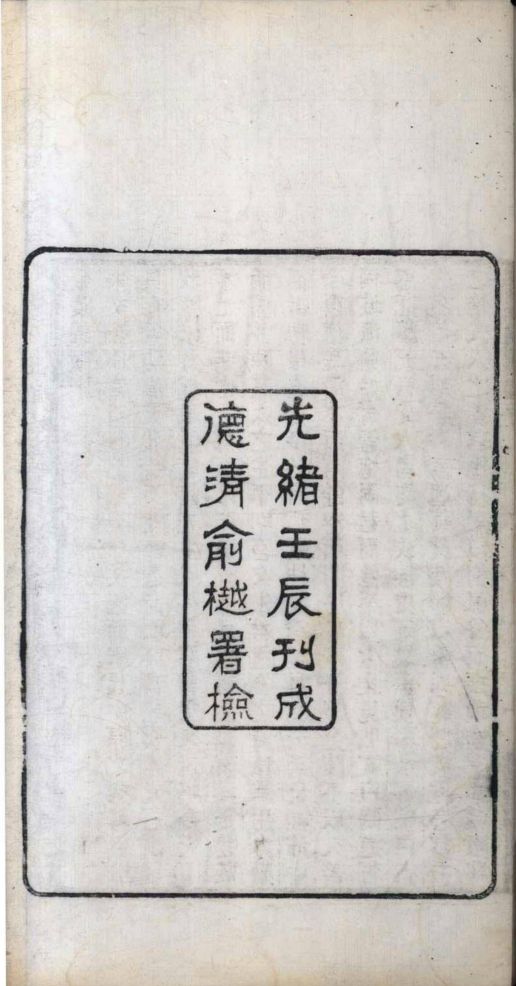 光緒壬辰刊成
德清俞樾署檢